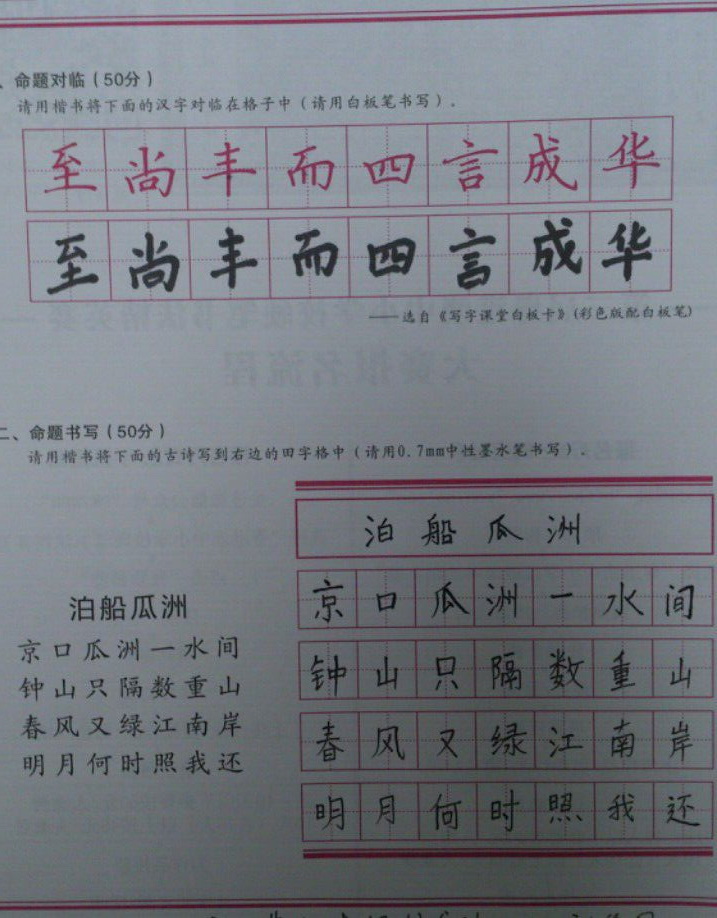 、命题对临（50分）
请用楷书将下面的汉字对临在格子中（请用白板笔书写）。
至尚丰而四言成华
至尚丰而四言成华
——选自《写字课堂白板卡》(彩色版配白板笔)
二、命题书写（50分）
请用楷书将下面的古诗写到右边的田字格中（请用0.7mm中性墨水笔书写）。
泊船瓜洲
京口瓜洲一水间
钟山只隔数重山
春风又绿江南岸
明月何时照我还
泊船瓜洲
京口瓜洲一水间
钟山只隔数重山
春风又绿江南岸
明月何时照我还